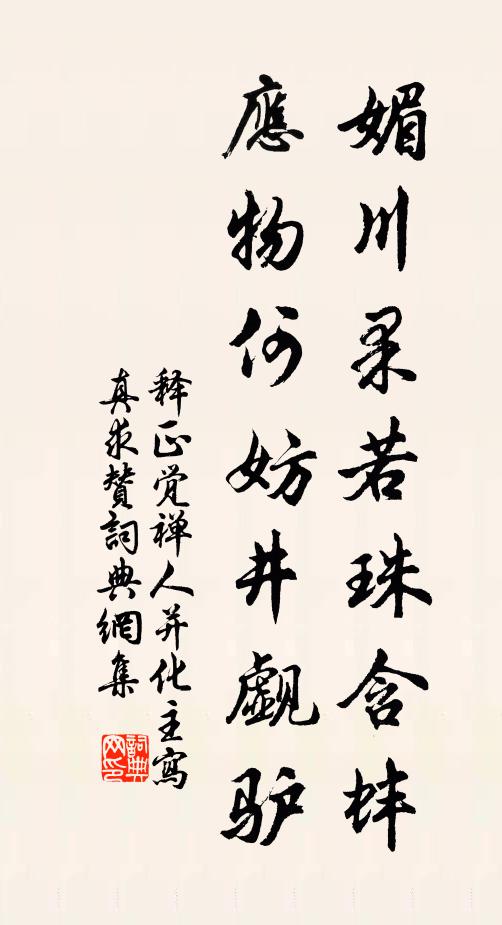 媚川果若珠含蚌
應物何妨井觑驴
释正觉禅人并化主寫
真求赞詞典網集
詞典网印